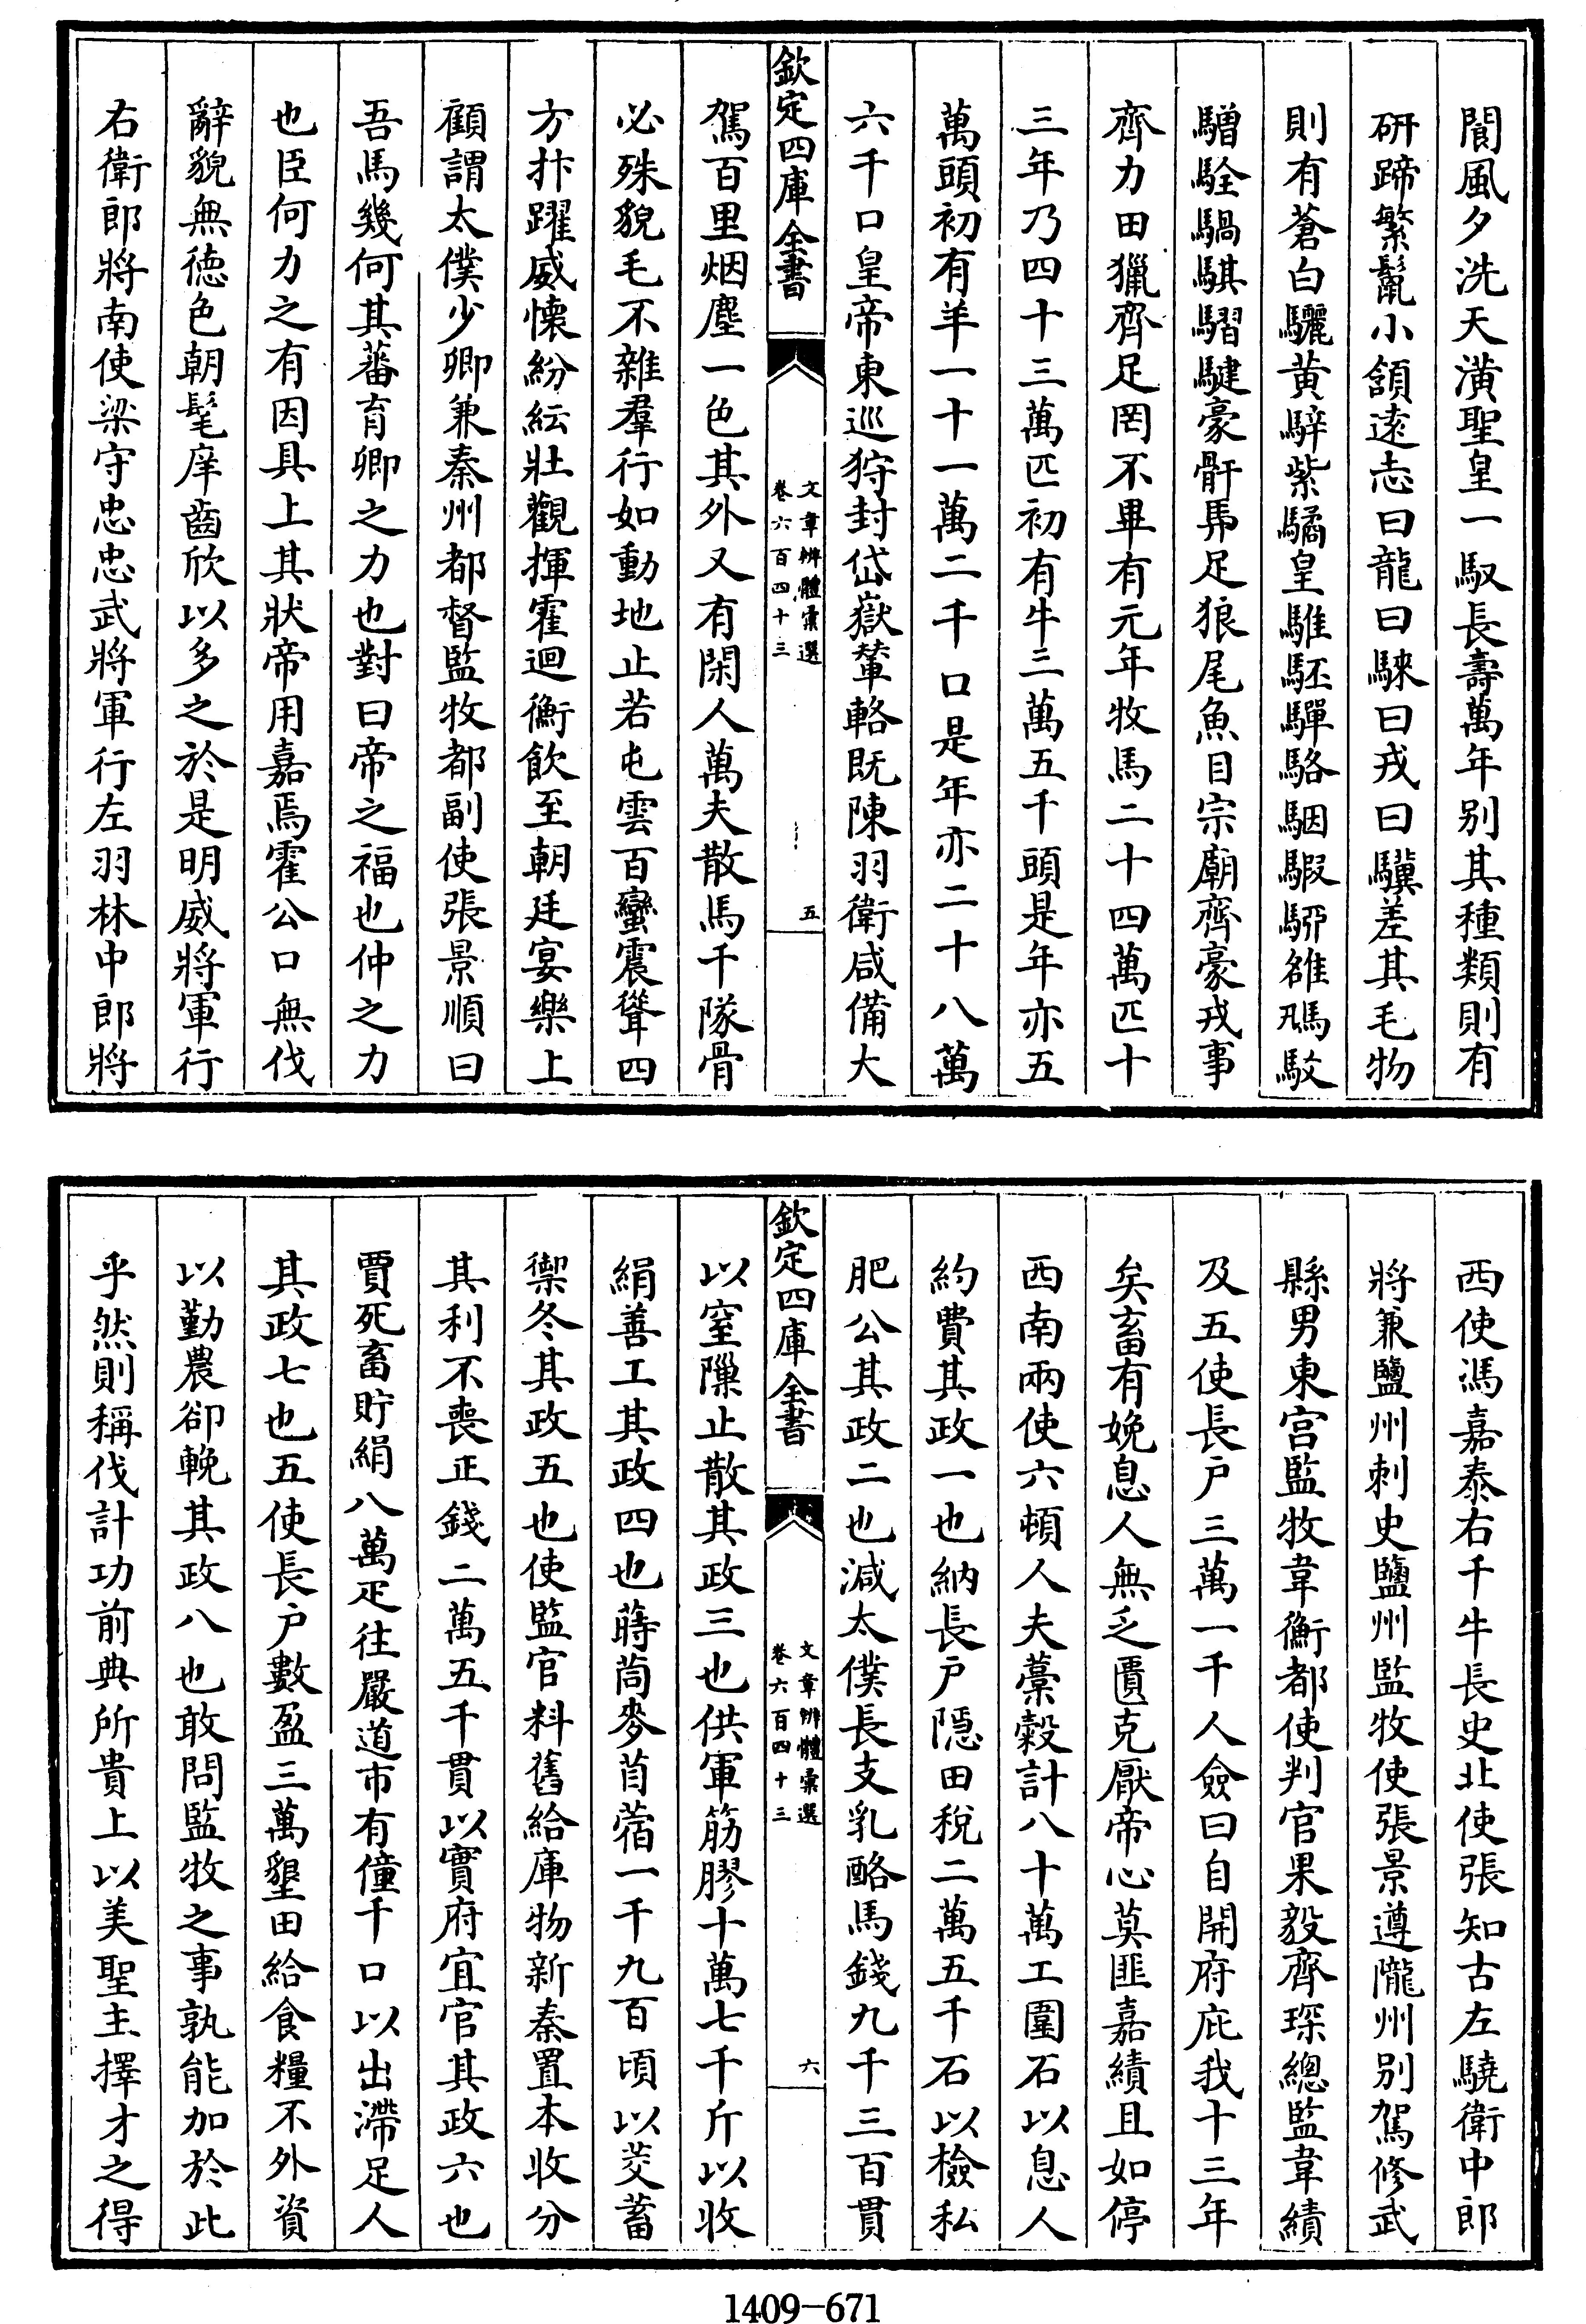 閬風夕洗天潢聖皇一馭長壽萬年别其種類則有
研蹄繁鬛小頷逺志曰龍曰騋曰戎曰驥差其毛物
則有蒼白驪黄騂紫驈皇騅駓驒駱駰騢䮑雒𩢍駁
驓駩騧騏騽騝豪骭馵足狼尾魚目宗廟齊豪戎事
齊力田獵齊足罔不畢有元年牧馬二十四萬匹十
三年乃四十三萬匹初有牛三萬五千頭是年亦五
萬頭初有羊一十一萬二千口是年亦二十八萬
六千口皇帝東巡狩封岱嶽輦輅既陳羽衛咸備大
欽定四庫全書
文章辨體彙選
卷六百四十三
五
駕百里烟塵一色其外又有閑人萬夫散馬千隊骨
必殊貌毛不雜羣行如動地止若屯雲百蠻震聳四
方抃躍威懐紛紜壯觀揮霍迴衡飲至朝廷宴樂上
顧謂太僕少卿兼秦州都督監牧都副使張景順曰
吾馬幾何其蕃育卿之力也對曰帝之福也仲之力
也臣何力之有因具上其狀帝用嘉焉霍公口無伐
辭貌無徳色朝髦庠齒欣以多之於是明威將軍行
右衛郎將南使梁守忠忠武將軍行左羽林中郎將
西使馮嘉泰右千牛長史北使張知古左驍衛中郎
將兼鹽州刺史鹽州監牧使張景遵隴州别駕修武
縣男東宫監牧韋衡都使判官果毅齊琛總監韋績
及五使長户三萬一千人僉曰自開府庇我十三年
矣畜有娩息人無乏匱克厭帝心莫匪嘉績且如停
西南兩使六頓人夫藁糓計八十萬工圍石以息人
約費其政一也納長户隠田税二萬五千石以檢私
肥公其政二也減太僕長支乳酪馬錢九千三百貫
欽定四庫全書
文章辨體彙選
卷六百四十三
六
以窒隟止散其政三也供軍筋膠十萬七千斤以收
絹善工其政四也蒔茼麥苜蓿一千九百頃以茭蓄
禦冬其政五也使監官料舊給庫物新奏置本收分
其利不喪正錢二萬五千貫以實府宜官其政六也
賈死畜貯絹八萬疋往嚴道市有僮千口以出滯足人
其政七也五使長户數盈三萬墾田給食糧不外資
以勤農卻輓其政八也敢問監牧之事孰能加於此
乎然則稱伐計功前典所貴上以美聖主擇才之得
1409-671